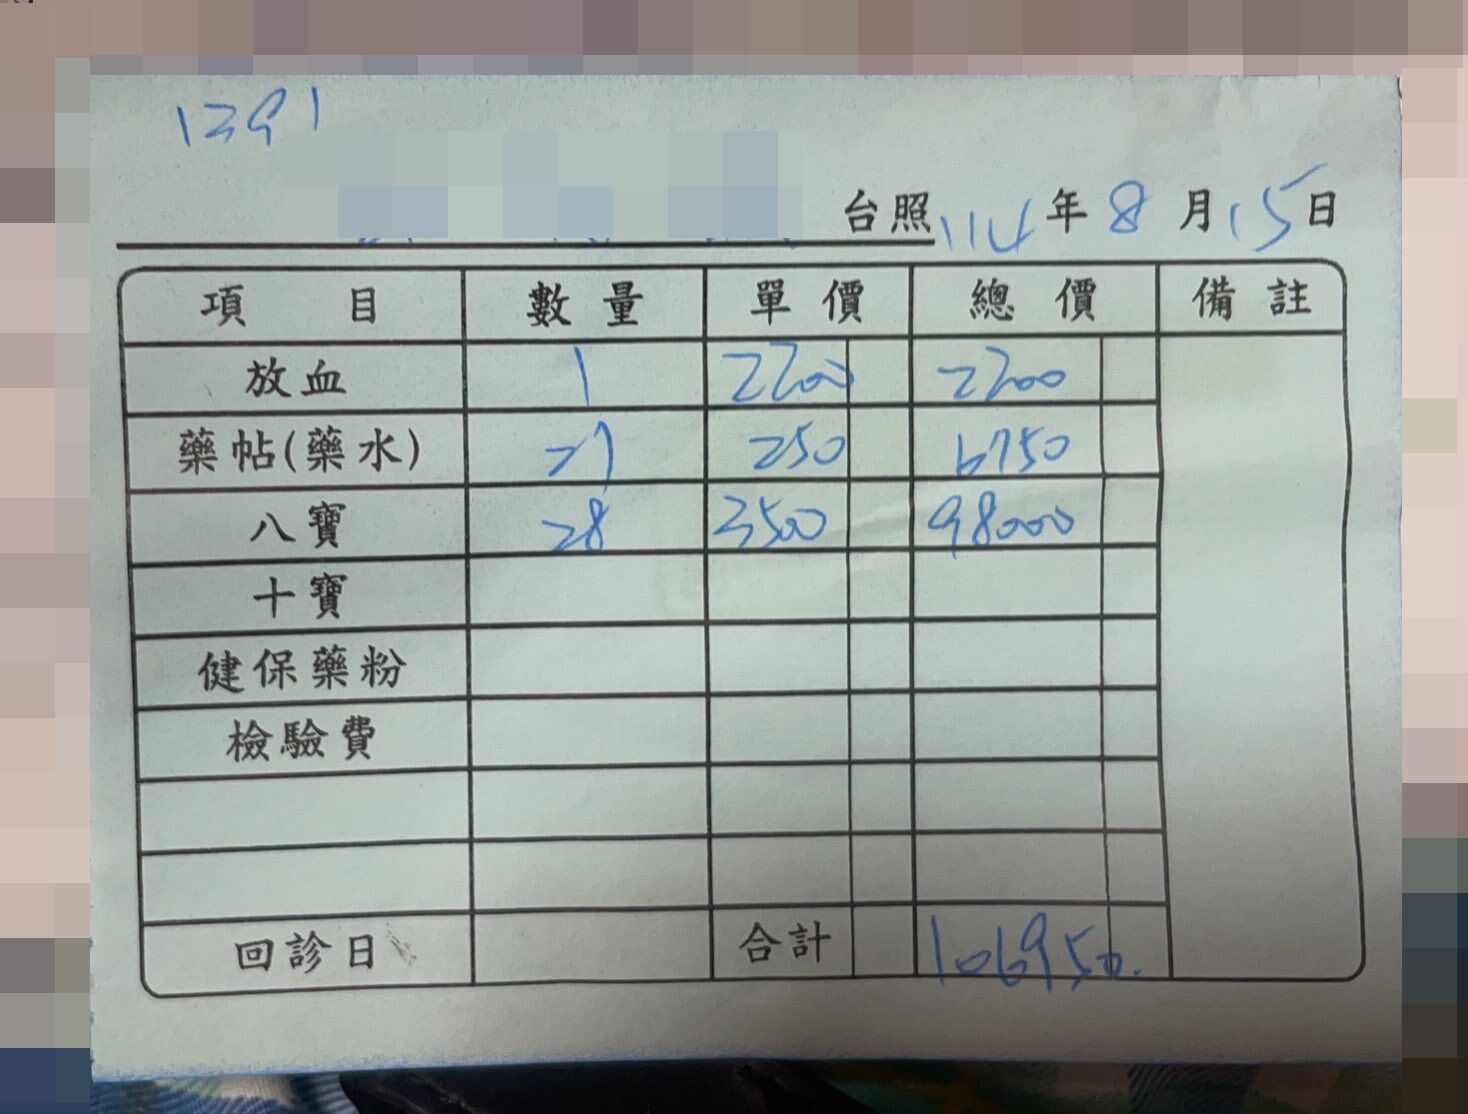 1391
台照 114 年 8 月 15 日
項目 數量 單價 總價 備註
放血 1 2200 2200
藥帖(藥水) 27 250 6750
八寶 28 3500 98000
十寶
健保藥粉
檢驗費
回診日 合計 106950.